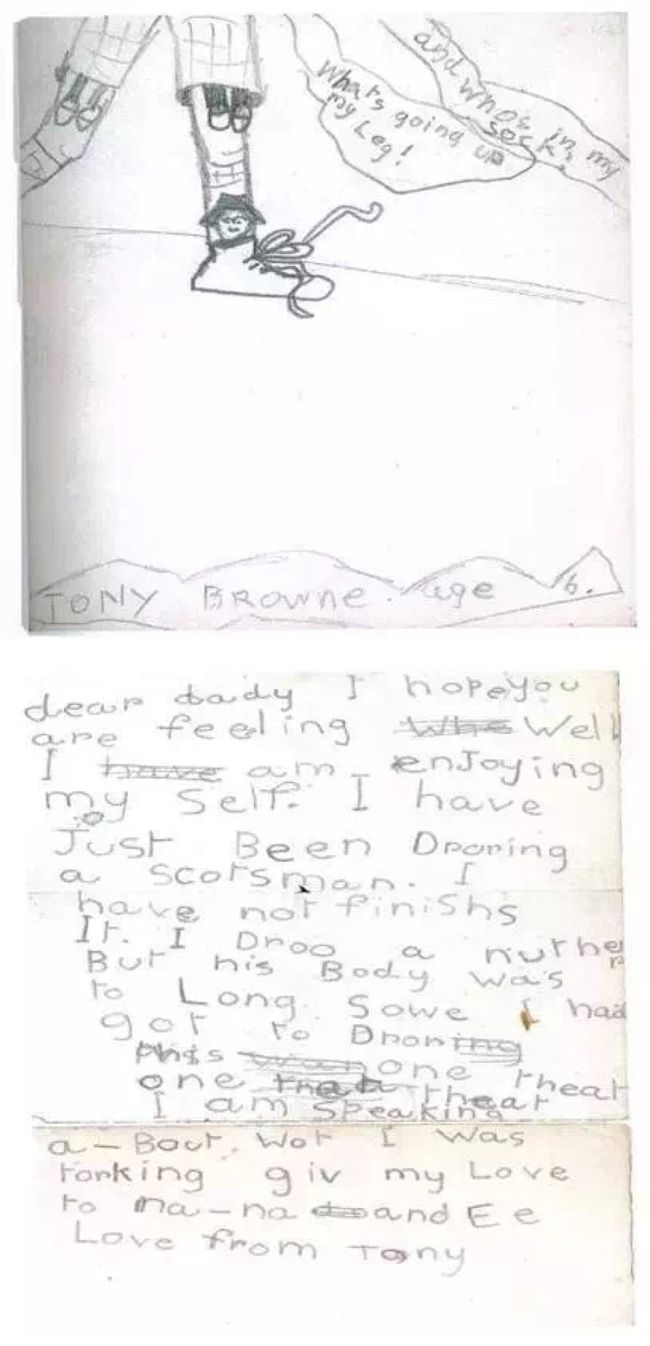 and whos in my
sock.
What's going up
my Leg!
TONY BROWNE. age 6.
dear dady I hope you
are feeling Whe Well
I have am enJoying
my Self. I have
Just Been Droring
a Scotsman. I
have not finishs
It. I Droo a nuther
But his Body was
to Long Sowe I had
got to Droring
this one
one theat theat
I am Speaking
a-Bout. Wot I was
torking giv my Love
to na-na to and Ee
Love from Tony